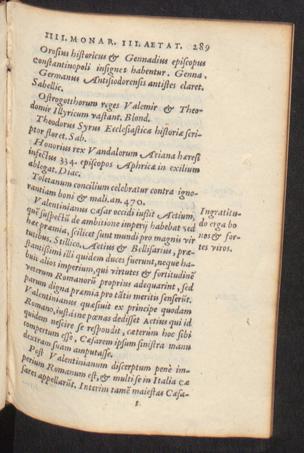 IIII. MONAR. III. AETAT. 289
Orosius historicus & Gennadius episcopus
Constantinopoli insignes habentur. Genna.
Germanus Antisiodorensis antistes claret.
Sabellic.
Ostrogotthorum reges Valemir & Theo-
domir Illyricum vastant. Blond.
Theodorus Syrus Ecclesiastica historiæ scri-
ptor floret. Sab.
Honorius rex Vandalorum Ariana hæresi
infectus 334. episcopos Aphricæ in exilium
ablegat. Diac.
Toletanum concilium celebratur contra igno-
rantiam boni & mali. an. 470.
Valentinianus Cæsar occidi iussit Aetium,
quē suspectū de ambitione imperij habebat sed
hæc præmia, scilicet sunt mundi pro magnis vir
tutibus. Stillico. Aetius & Bellisarius, præ-
stantissimi illi quidem duces fuerunt, neque ha-
buit alios imperium, qui virtutes & fortitudinē
veterum Romanorū proprius adequarint, sed
parum digna præmia pro tātis meritis senserūt.
Valentinianus quæsiuit ex principe quodam
Romano, iustáne pœnas dedisset Aetius qui id
quidem nescire se respondit, cæterùm hoc sibi
compertum esse, Cæsarem ipsum sinistra manu
dextram suam amputasse.
Post Valentinianum discerptum penè im-
perium Romanum est, & multi se in Italia Cæ
sares appellarūt. Interim tamē maiestas Cæsa-
Ingratitu-
do erga bo
nos & for-
tes viros.